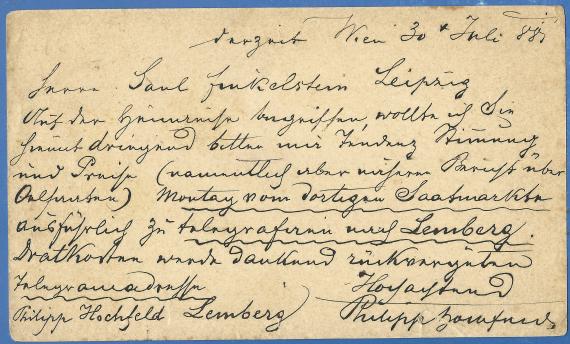 derzeit Wien 30t Juli 881
Herrn Saul Finkelstein Leipzig
Auf der Heimreise begriffen, wollte ich Sie
hiemit dringend bitten mir Tendenz Stimmung
und Preise (namentlich aber näheren Bericht über
Oelsaaten) Montag vom dortigen Saatmarkte
ausführlich zu telegrafiren nach Lemberg.
Dratkosten werde dankend rückvergüten
Telegramadresse Hochachtend
Philipp Hochfeld Lemberg) Philipp Hochfeld